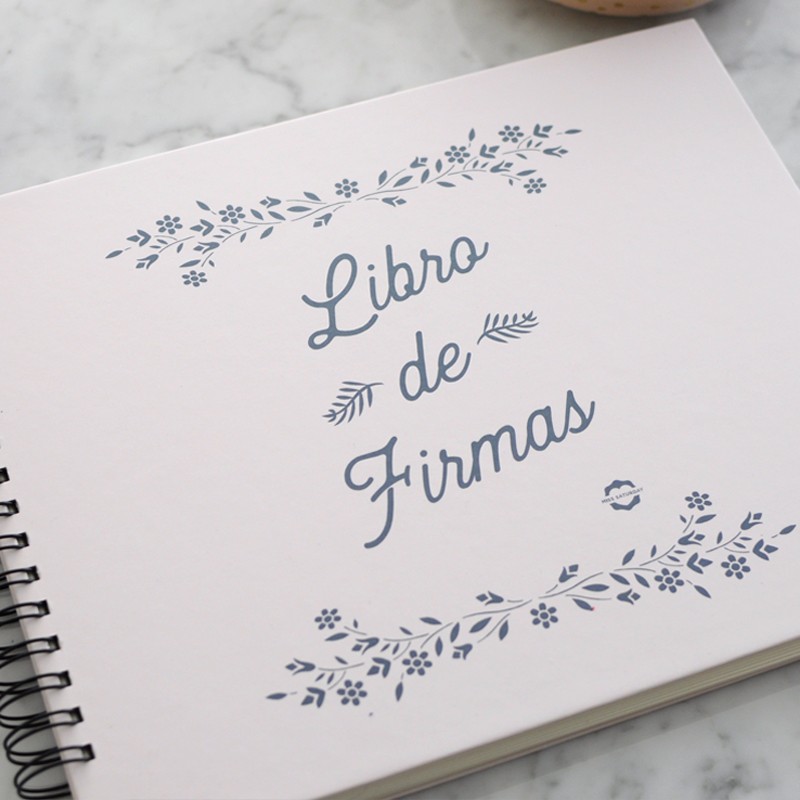 Libro
de
Firmas
MISS SATURDAY